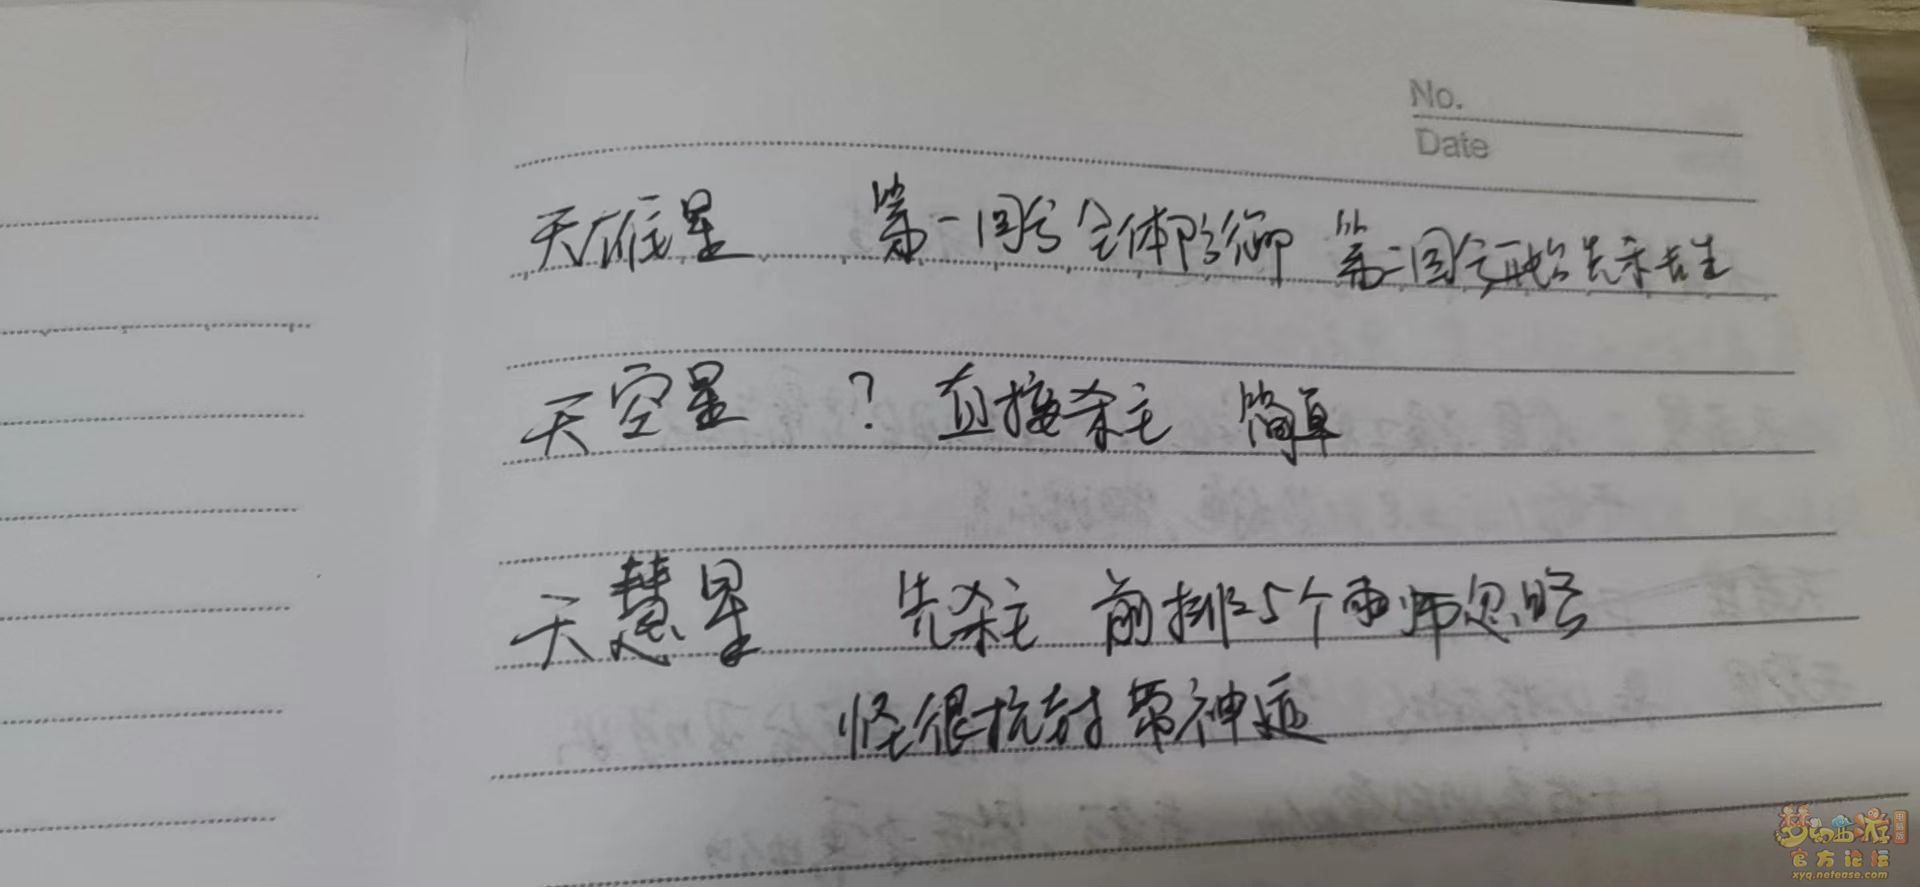 No.
Date
天雄星 第一回合全体防御 第二回合开始先杀
天空星 ? 直接杀主 简单
天慧星 先杀主 前排5个雨师忽略
怪很抗 带神迹
梦幻西游 电脑版
官方论坛
xyq.netease.com